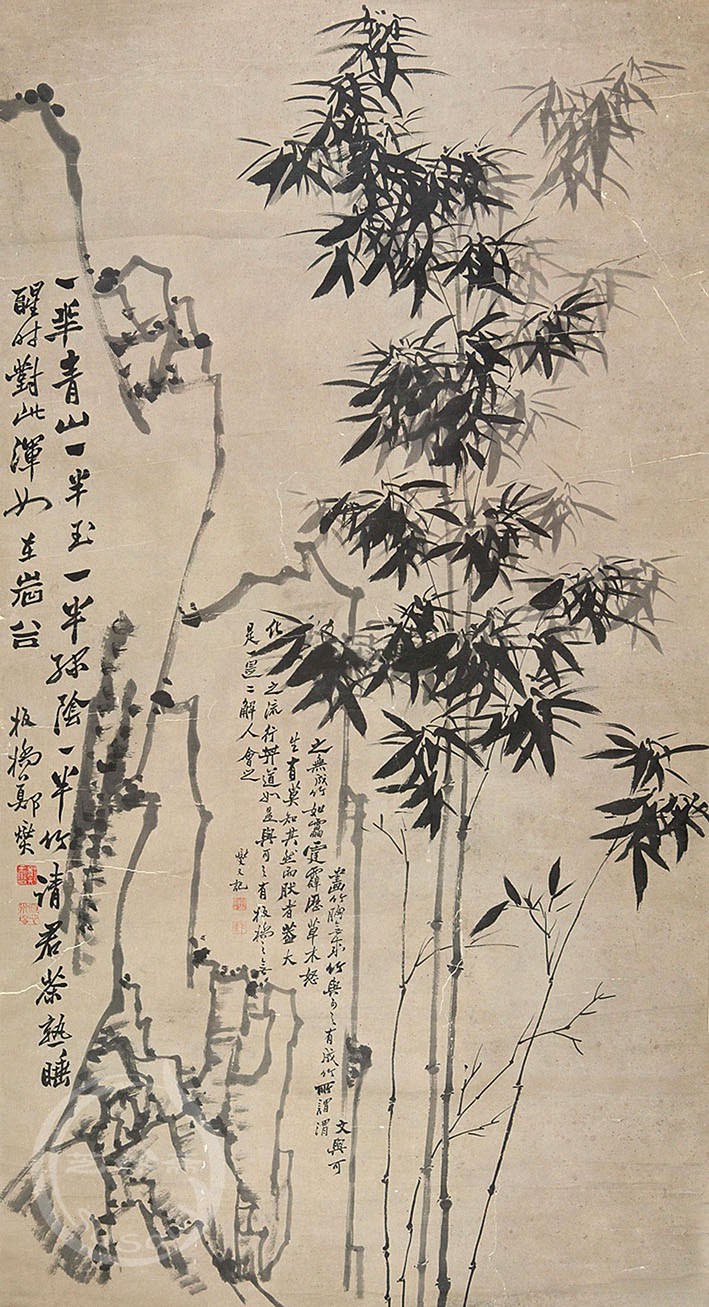 文與可
竹與可之有成竹所謂渭
之無成竹如雷霆霹靂草木怒
生有莫知其然而然者蓋大
化之流行其道如是與可之有板橋之無
是一是二解人會之
燮又記
一半青山一半玉一半綠陰一半竹請君茶熟睡
醒时對此渾如在岩谷
板橋鄭燮